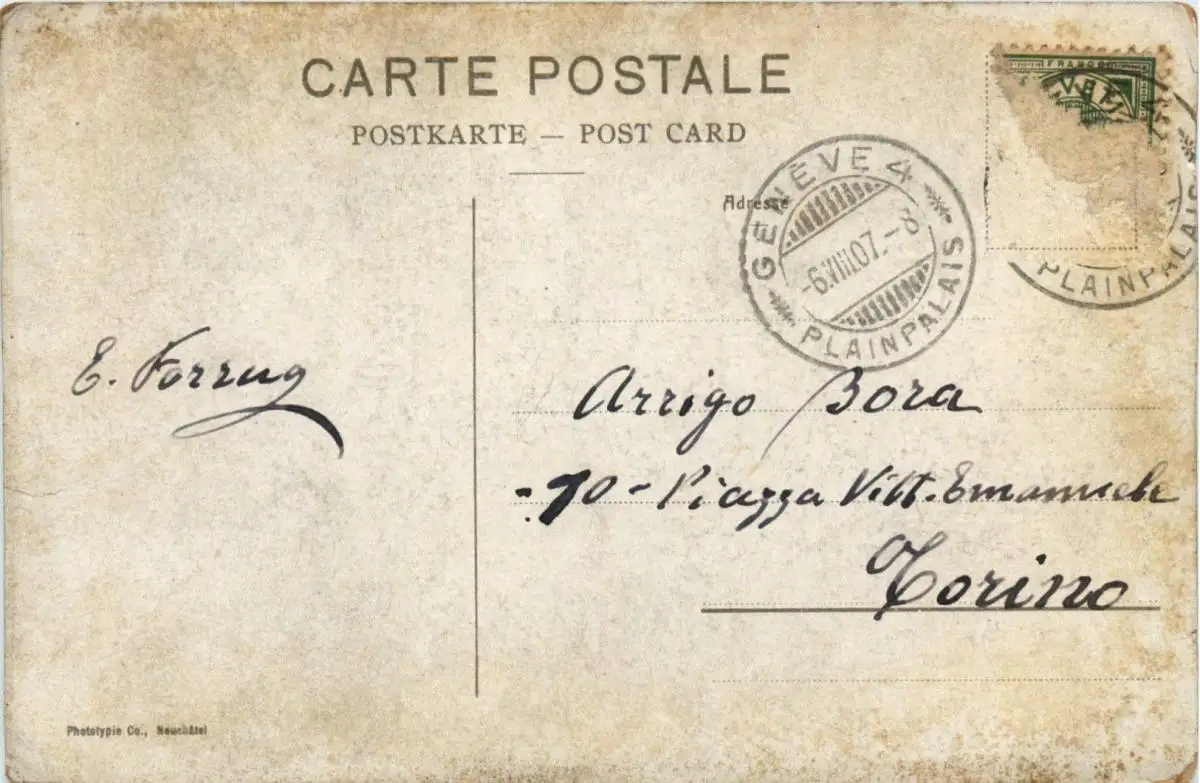 CARTE POSTALE
POSTKARTE — POST CARD
FRANCO
Adresse
GENÈVE 4
-6.VIII.07.-8
PLAINPALAIS
PLAINPALAIS
E.
Arrigo Bora
-10- Piazza Vitt. Emanuele
Torino
Phototypie Co., Neuchâtel